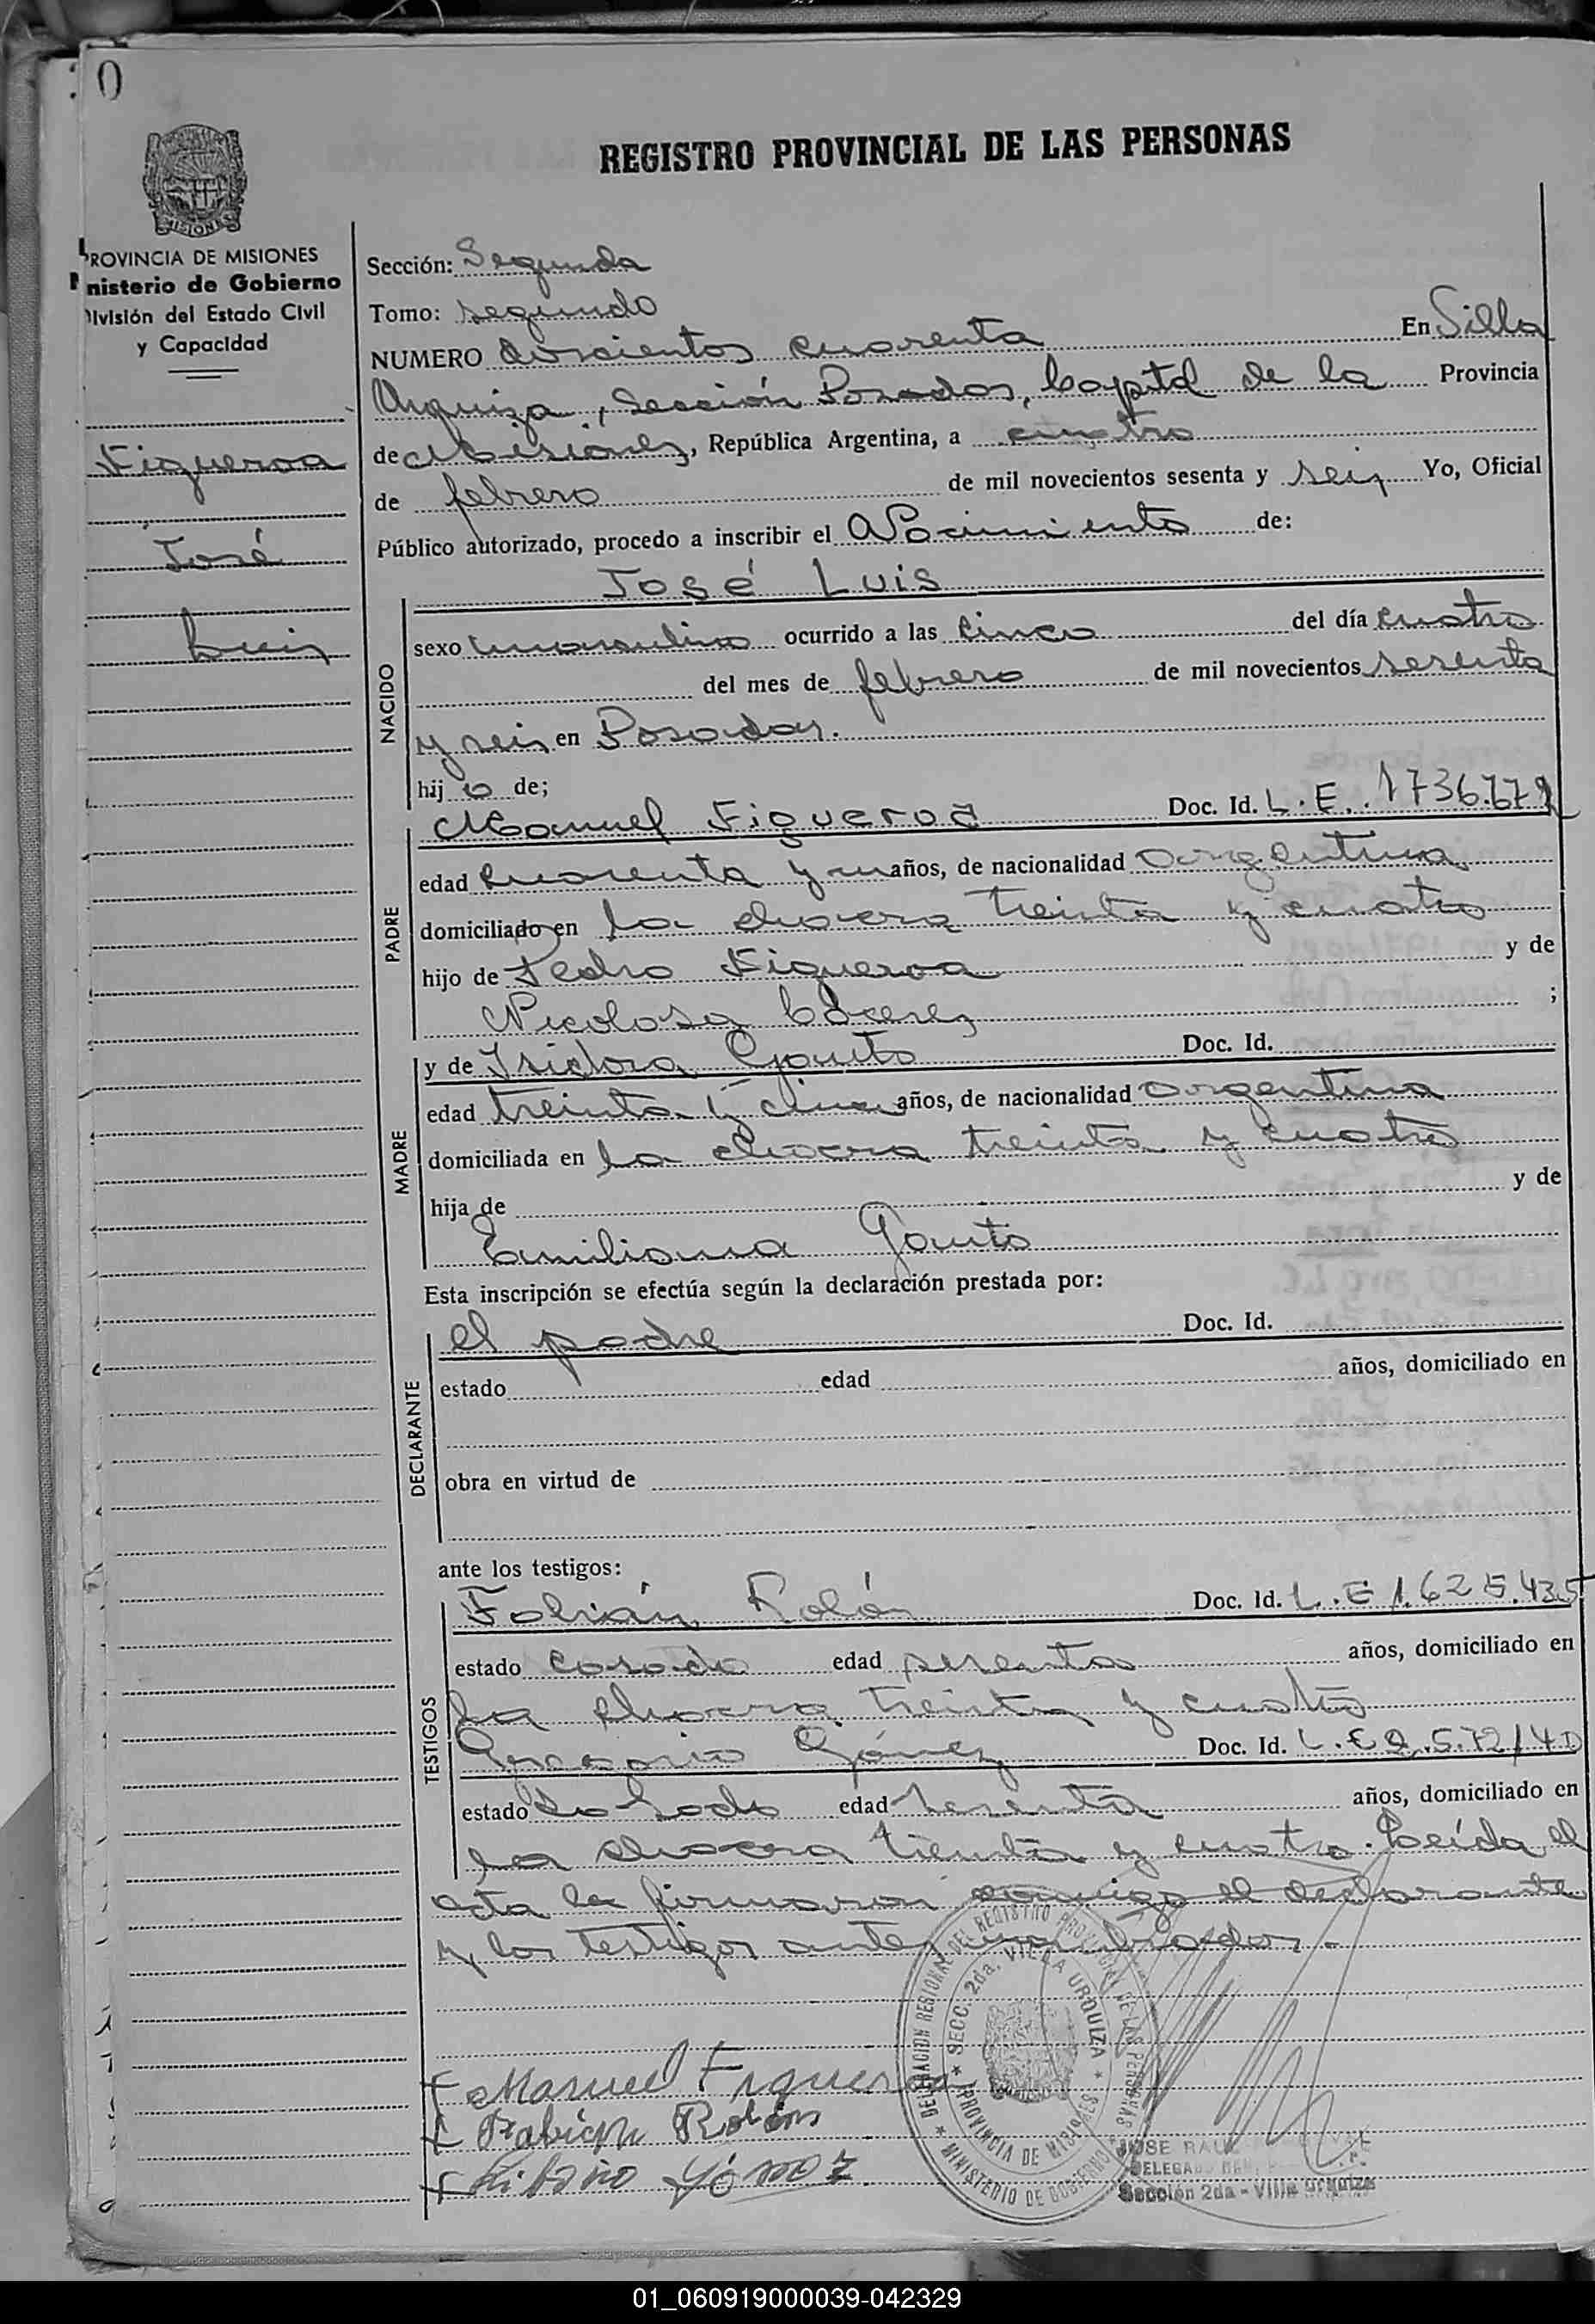 0
REGISTRO PROVINCIAL DE LAS PERSONAS
MISIONES
PROVINCIA DE MISIONES
nisterio de Gobierno
División del Estado Civil
y Capacidad
Figueroa
José
Luis
Sección: Segunda
Tomo: segundo
NUMERO doscientos cuarenta En Villa
Urquiza, Sección Posadas, Capital de la Provincia
de Misiones, República Argentina, a cuatro
de febrero de mil novecientos sesenta y seis Yo, Oficial
Público autorizado, procedo a inscribir el Nacimiento de:
José Luis
NACIDO
sexo masculino ocurrido a las cinco del día cuatro
del mes de febrero de mil novecientos sesenta
y seis en Posadas.
hijo de;
PADRE
Manuel Figueroa Doc. Id. L.E. 1736.679
edad cuarenta y un años, de nacionalidad argentina
domiciliado en la chacra treinta y cuatro
hijo de Pedro Figueroa y de
Nicolasa Cáceres ;
MADRE
y de Isidora Gauto Doc. Id.
edad treinta y cinco años, de nacionalidad argentina
domiciliada en la chacra treinta y cuatro
hija de y de
Emiliana Gauto
Esta inscripción se efectúa según la declaración prestada por:
DECLARANTE
el padre Doc. Id.
estado edad años, domiciliado en
obra en virtud de
ante los testigos:
TESTIGOS
Fabián Rolón Doc. Id. L.E 1.625.435
estado casado edad sesenta años, domiciliado en
la chacra treinta y cuatro
Gómez Doc. Id. L.E
estado edad sesenta años, domiciliado en
la chacra treinta y cuatro. Leída el
acta la firmaron conmigo el declarante
y los testigos antes nombrados.
DELEGACION REGIONAL DEL REGISTRO PROVINCIAL DE LAS PERSONAS
SECC. 2da. VILLA URQUIZA
PROVINCIA DE MISIONES
MINISTERIO DE GOBIERNO
Manuel Figueroa
Fabián Rolón
Gómez
JOSE RAUL
DELEGADO
Sección 2da - Villa Urquiza
01_060919000039-042329